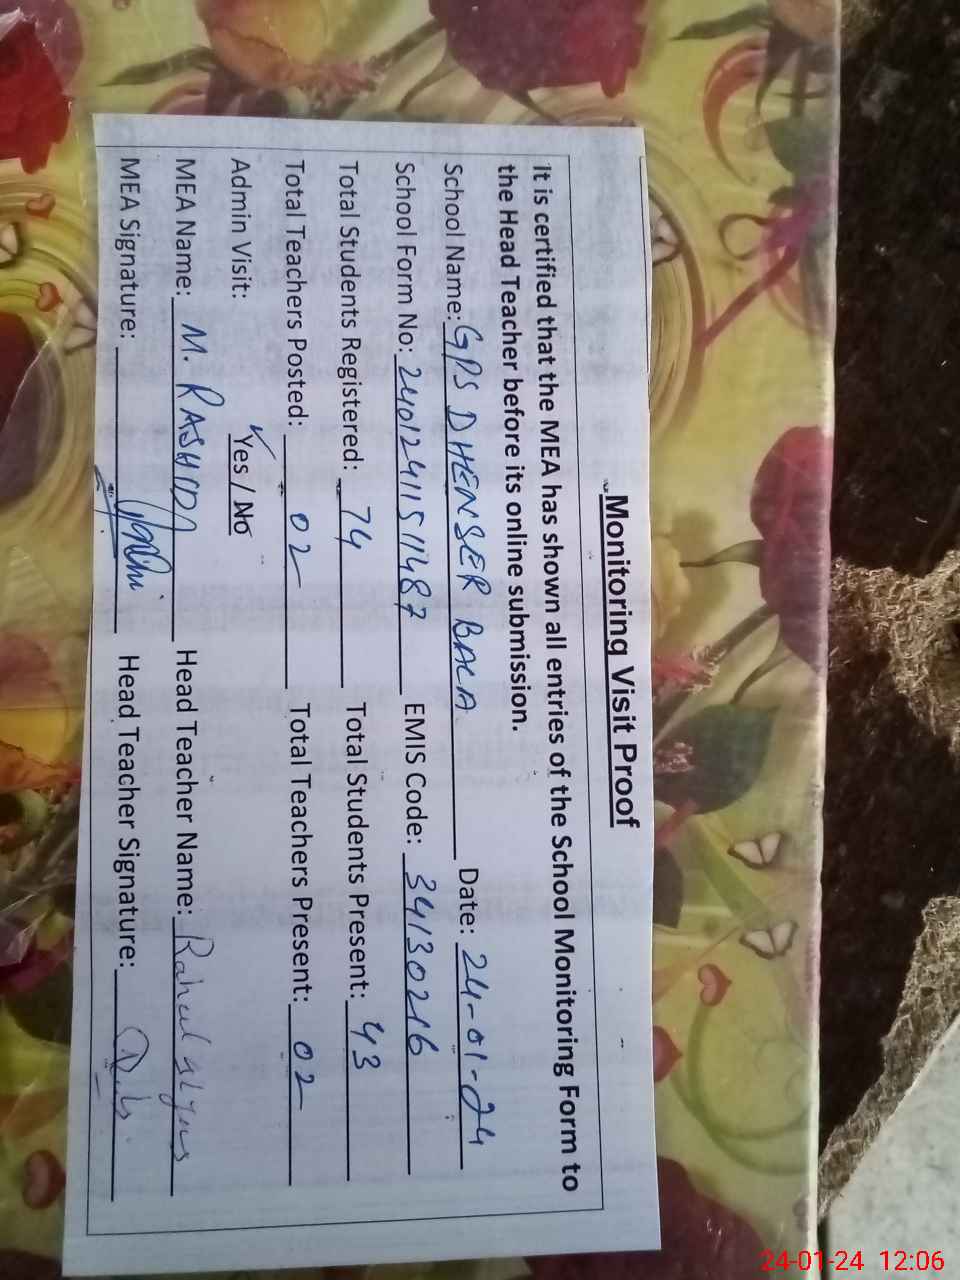 Monitoring Visit Proof
It is certified that the MEA has shown all entries of the School Monitoring Form to
the Head Teacher before its online submission.
School Name: GPS DHENSER BALA Date: 24-01-24
School Form No: 24012411511487 EMIS Code: 34130216
Total Students Registered: 74 Total Students Present: 43
Total Teachers Posted: 02 Total Teachers Present: 02
Admin Visit: ✓Yes / No
MEA Name: M. RASHID Head Teacher Name:
MEA Signature: Head Teacher Signature:
24-01-24 12:06